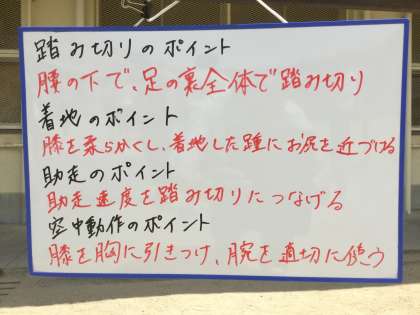 踏み切りのポイント
腰の下で、足の裏全体で踏み切り
着地のポイント
膝を柔らかくし、着地した踵にお尻を近づける
助走のポイント
助走速度を踏み切りにつなげる
空中動作のポイント
膝を胸に引きつけ、腕を適切に使う